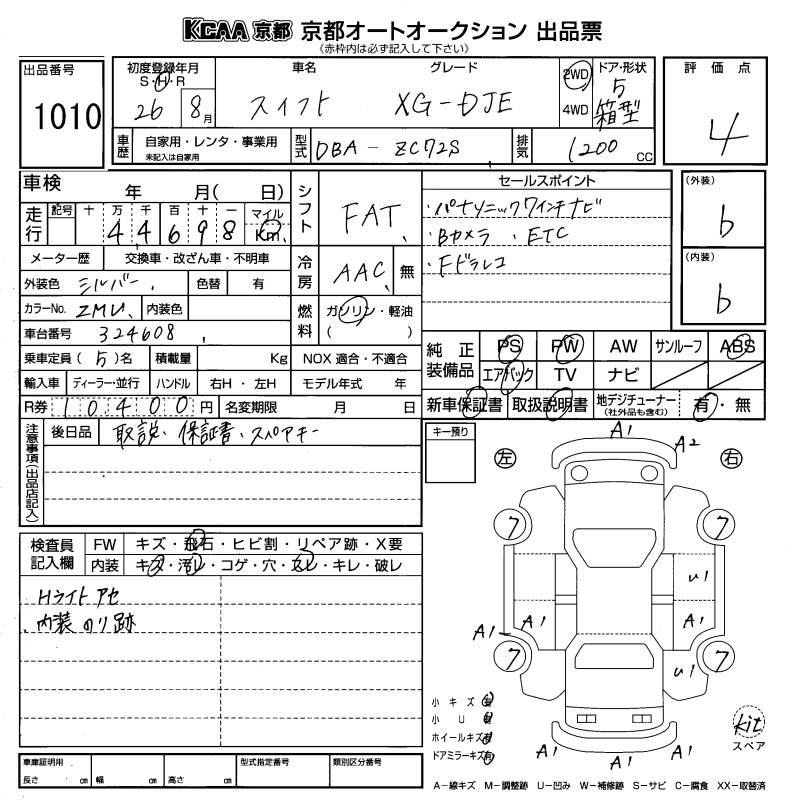 KCAA 京都 京都オートオークション 出品票
《赤枠内は必ず記入して下さい》
出品番号
1010
初度登録年月
S・H・R
26 8月
車名
スイフト
グレード
XG-DJE
2WD
4WD
ドア・形状
5
箱型
評価点
4
車歴
自家用・レンタ・事業用
未記入は自家用
型式
DBA-ZC72S
排気
1200 CC
車検 年 月( 日)
走行
記号 十 万 千 百 十 一 マイル
4 4 6 9 8 Km
メーター歴 交換車・改ざん車・不明車
外装色 シルバー 色替 有
カラーNo. ZMU 内装色
車台番号 324608
乗車定員 (5)名 積載量 Kg
輸入車 ディーラー・並行 ハンドル 右H・左H
R券 10400円 名変期限 月 日
シフト FAT
冷房 AAC 無
燃料 ガソリン・軽油
( )
NOX 適合・不適合
モデル年式 年
セールスポイント
・パナソニックワインナビ
・Bカメラ ・ETC
・Fドラレコ
(外装)
b
(内装)
b
純正装備品
PS PW AW サンルーフ ABS
エアバック TV ナビ
新車保証書 取扱説明書 地デジチューナー
(社外品も含む) 有・無
注意事項(出品店記入)
後日品 取説、保証書、スペアキー
キー預り
検査員記入欄
FW キズ・飛石・ヒビ割・リペア跡・X要
内装 キズ・汚レ・コゲ・穴・スレ・キレ・破レ
Hライトアセ
内装のり跡
左 右
A1
A2
7 7
U1
A1 A1 A1
7 7
U1
A1 A1 A1
小キズ 有
小U 有
ホイールキズ 有
ドアミラーキズ 有
kit
スペア
車庫証明用
長さ cm 幅 cm 高さ cm
型式指定番号
類別区分番号
A−線キズ M−調整跡 U−凹み W−補修跡 S−サビ C−腐食 XX−取替済